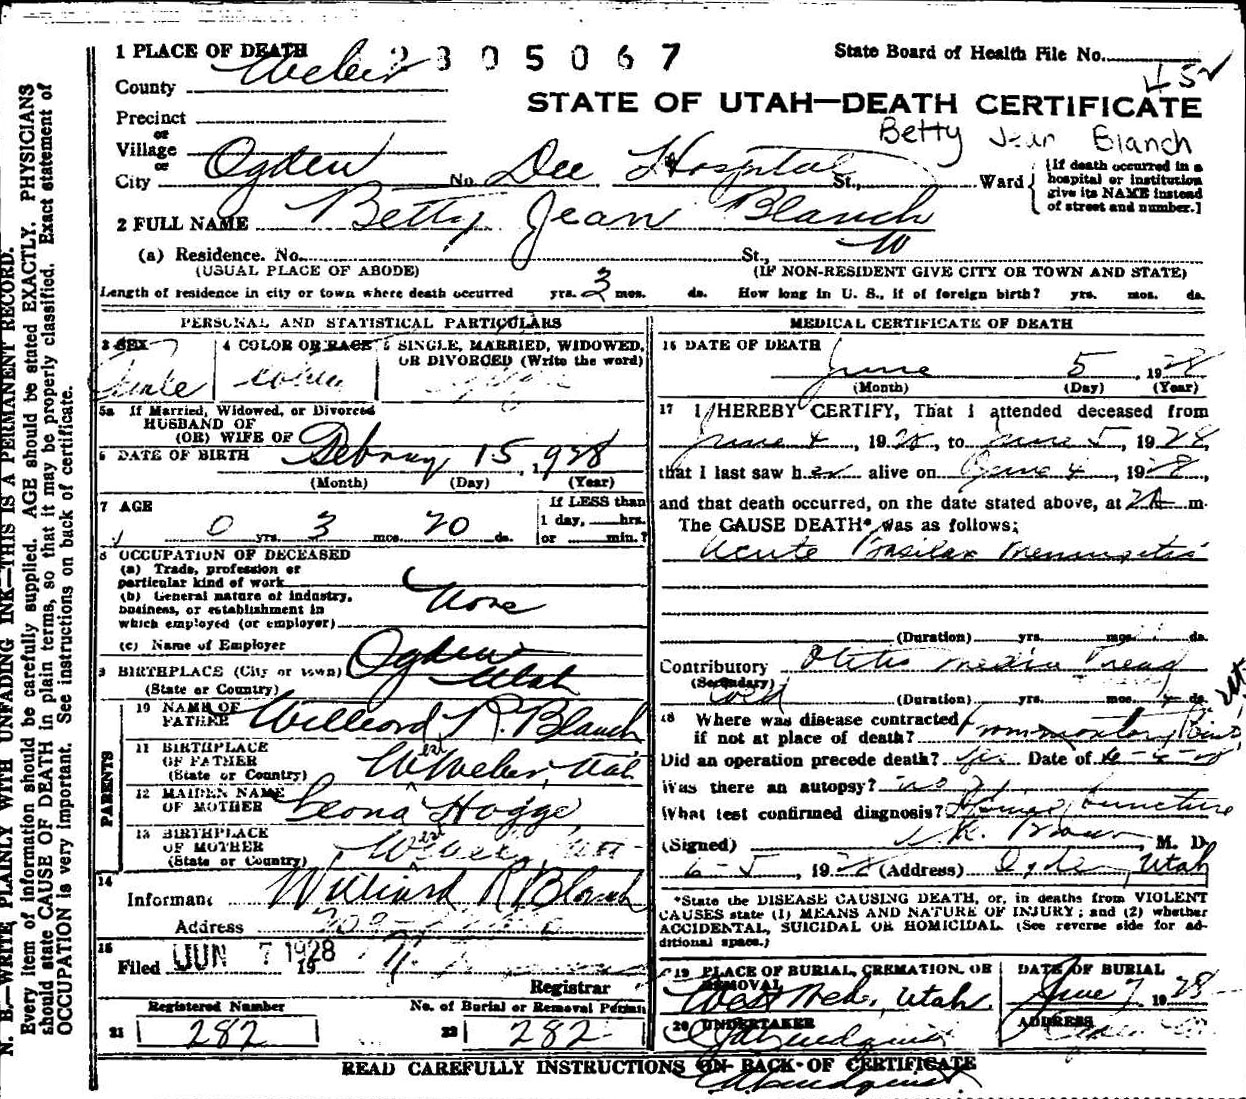 N. B.—WRITE PLAINLY WITH UNFADING INK—THIS IS A PERMANENT RECORD.
Every item of information should be carefully supplied. AGE should be stated EXACTLY. PHYSICIANS
should state CAUSE OF DEATH in plain terms, so that it may be properly classified. Exact statement of
OCCUPATION is very important. See instructions on back of certificate.
1 PLACE OF DEATH
2305067
State Board of Health File No.
County Weber
STATE OF UTAH—DEATH CERTIFICATE
Precinct
Betty Jean Blanch
or
Village
or
City Ogden No. Dee Hospital St., Ward
[If death occurred in a
hospital or institution
give its NAME instead
of street and number.]
2 FULL NAME Betty Jean Blanch
(a) Residence. No. St., W
(USUAL PLACE OF ABODE) (IF NON-RESIDENT GIVE CITY OR TOWN AND STATE)
Length of residence in city or town where death occurred yrs. 3 mos. ds. How long in U. S., if of foreign birth? yrs. mos. ds.
PERSONAL AND STATISTICAL PARTICULARS
3 SEX
4 COLOR OR RACE
5 SINGLE, MARRIED, WIDOWED,
OR DIVORCED (Write the word)
5a If Married, Widowed, or Divorced
HUSBAND OF
(OR) WIFE OF
6 DATE OF BIRTH 15, 1928
(Month) (Day) (Year)
7 AGE
If LESS than
1 day, hrs.
or min.?
0 yrs. 3 mos. 20 ds.
8 OCCUPATION OF DECEASED
(a) Trade, profession or
particular kind of work
(b) General nature of industry,
business, or establishment in
which employed (or employer)
None
(c) Name of Employer
9 BIRTHPLACE (City or town) Ogden
(State or Country) Utah
PARENTS
10 NAME OF
FATHER Williard R. Blanch
11 BIRTHPLACE
OF FATHER
(State or Country) W est Weber, Utah
12 MAIDEN NAME
OF MOTHER Leona Hogge
13 BIRTHPLACE
OF MOTHER
(State or Country)
14
Informant Williard R Blanch
Address
15
Filed JUN 7 1928 19
Registrar
Registered Number
No. of Burial or Removal Permit
21 282
22 282
MEDICAL CERTIFICATE OF DEATH
16 DATE OF DEATH
June 5, 1928
(Month) (Day) (Year)
17 I HEREBY CERTIFY, That I attended deceased from
June 4, 1928, to June 5, 1928,
that I last saw her alive on June 4, 1928,
and that death occurred, on the date stated above, at 2A m.
The CAUSE DEATH* was as follows:
Acute Basilar Meningitis
(Duration) yrs. mos. ds.
Contributory Otitis media Head
(Secondary) cold
(Duration) yrs. mos. 4 ds.
18 Where was disease contracted
if not at place of death? Promontory Point, Ut
Did an operation precede death? Date of
Was there an autopsy? no
What test confirmed diagnosis? puncture
(Signed) M. D.
6-5, 1928 (Address) Ogden, Utah
*State the DISEASE CAUSING DEATH, or, in deaths from VIOLENT
CAUSES state (1) MEANS AND NATURE OF INJURY; and (2) whether
ACCIDENTAL, SUICIDAL OR HOMICIDAL. (See reverse side for ad-
ditional space.)
19 PLACE OF BURIAL, CREMATION, OR
REMOVAL
West Web., Utah
DATE OF BURIAL
June 7 1928
20 UNDERTAKER
ADDRESS
READ CAREFULLY INSTRUCTIONS ON BACK OF CERTIFICATE